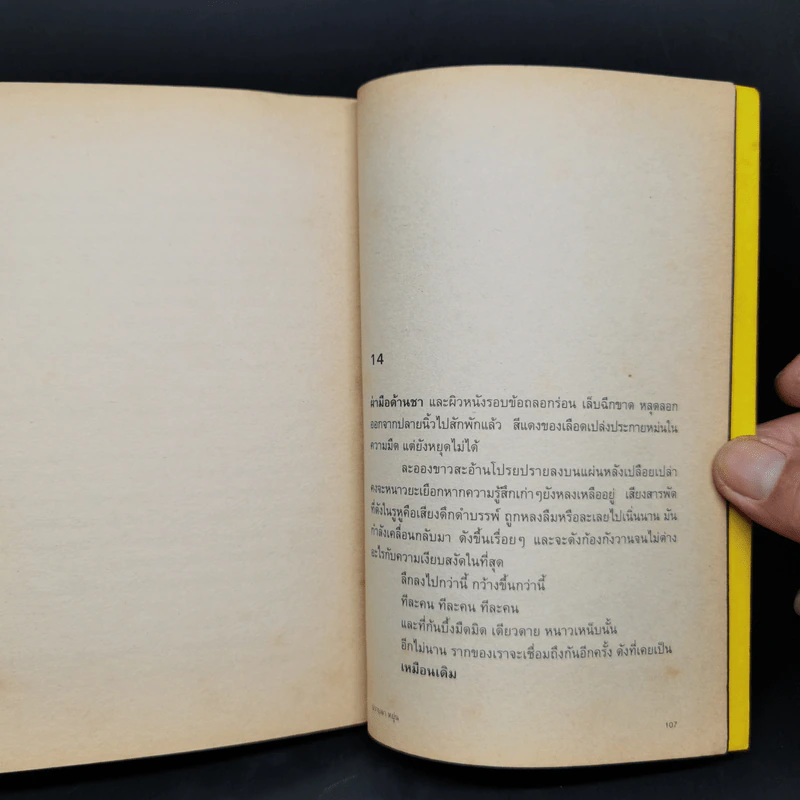 14
ฝ่ามือด้านชา และผิวหนังรอบข้อถลอกร่อน เล็บฉีกขาด หลุดลอก
ออกจากปลายนิ้วไปสักพักแล้ว สีแดงของเลือดเปล่งประกายหม่นใน
ความมืด แต่ยังหยุดไม่ได้
ละอองขาวสะอ้านโปรยปรายลงบนแผ่นหลังเปลือยเปล่า
คงจะหนาวยะเยือกหากความรู้สึกเก่าๆยังหลงเหลืออยู่ เสียงสารพัด
ที่ดังในรูหูคือเสียงดึกดำบรรพ์ ถูกหลงลืมหรือละเลยไปเนิ่นนาน มัน
กำลังเคลื่อนกลับมา ดังขึ้นเรื่อยๆ และจะดังก้องกังวานจนไม่ต่าง
อะไรกับความเงียบสงัดในที่สุด
ลึกลงไปกว่านี้ กว้างขึ้นกว่านี้
ทีละคน ทีละคน ทีละคน
และที่ก้นบึ้งมืดมิด เดียวดาย หนาวเหน็บนั้น
อีกไม่นาน รากของเราจะเชื่อมถึงกันอีกครั้ง ดังที่เคยเป็น
เหมือนเดิม
หยุ่น
107